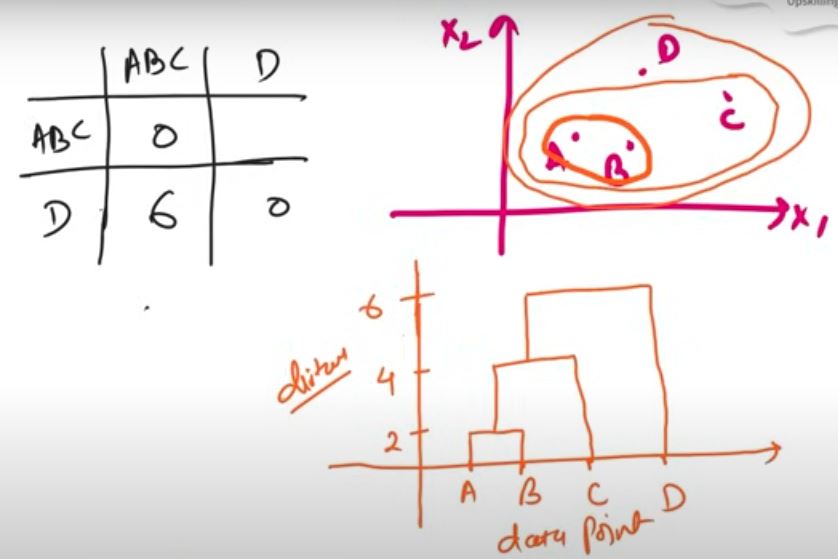 Upskilling
ABC D
ABC 0
D 6 0
X2
D
C
A B
X1
6
4
2
A B C D
data point